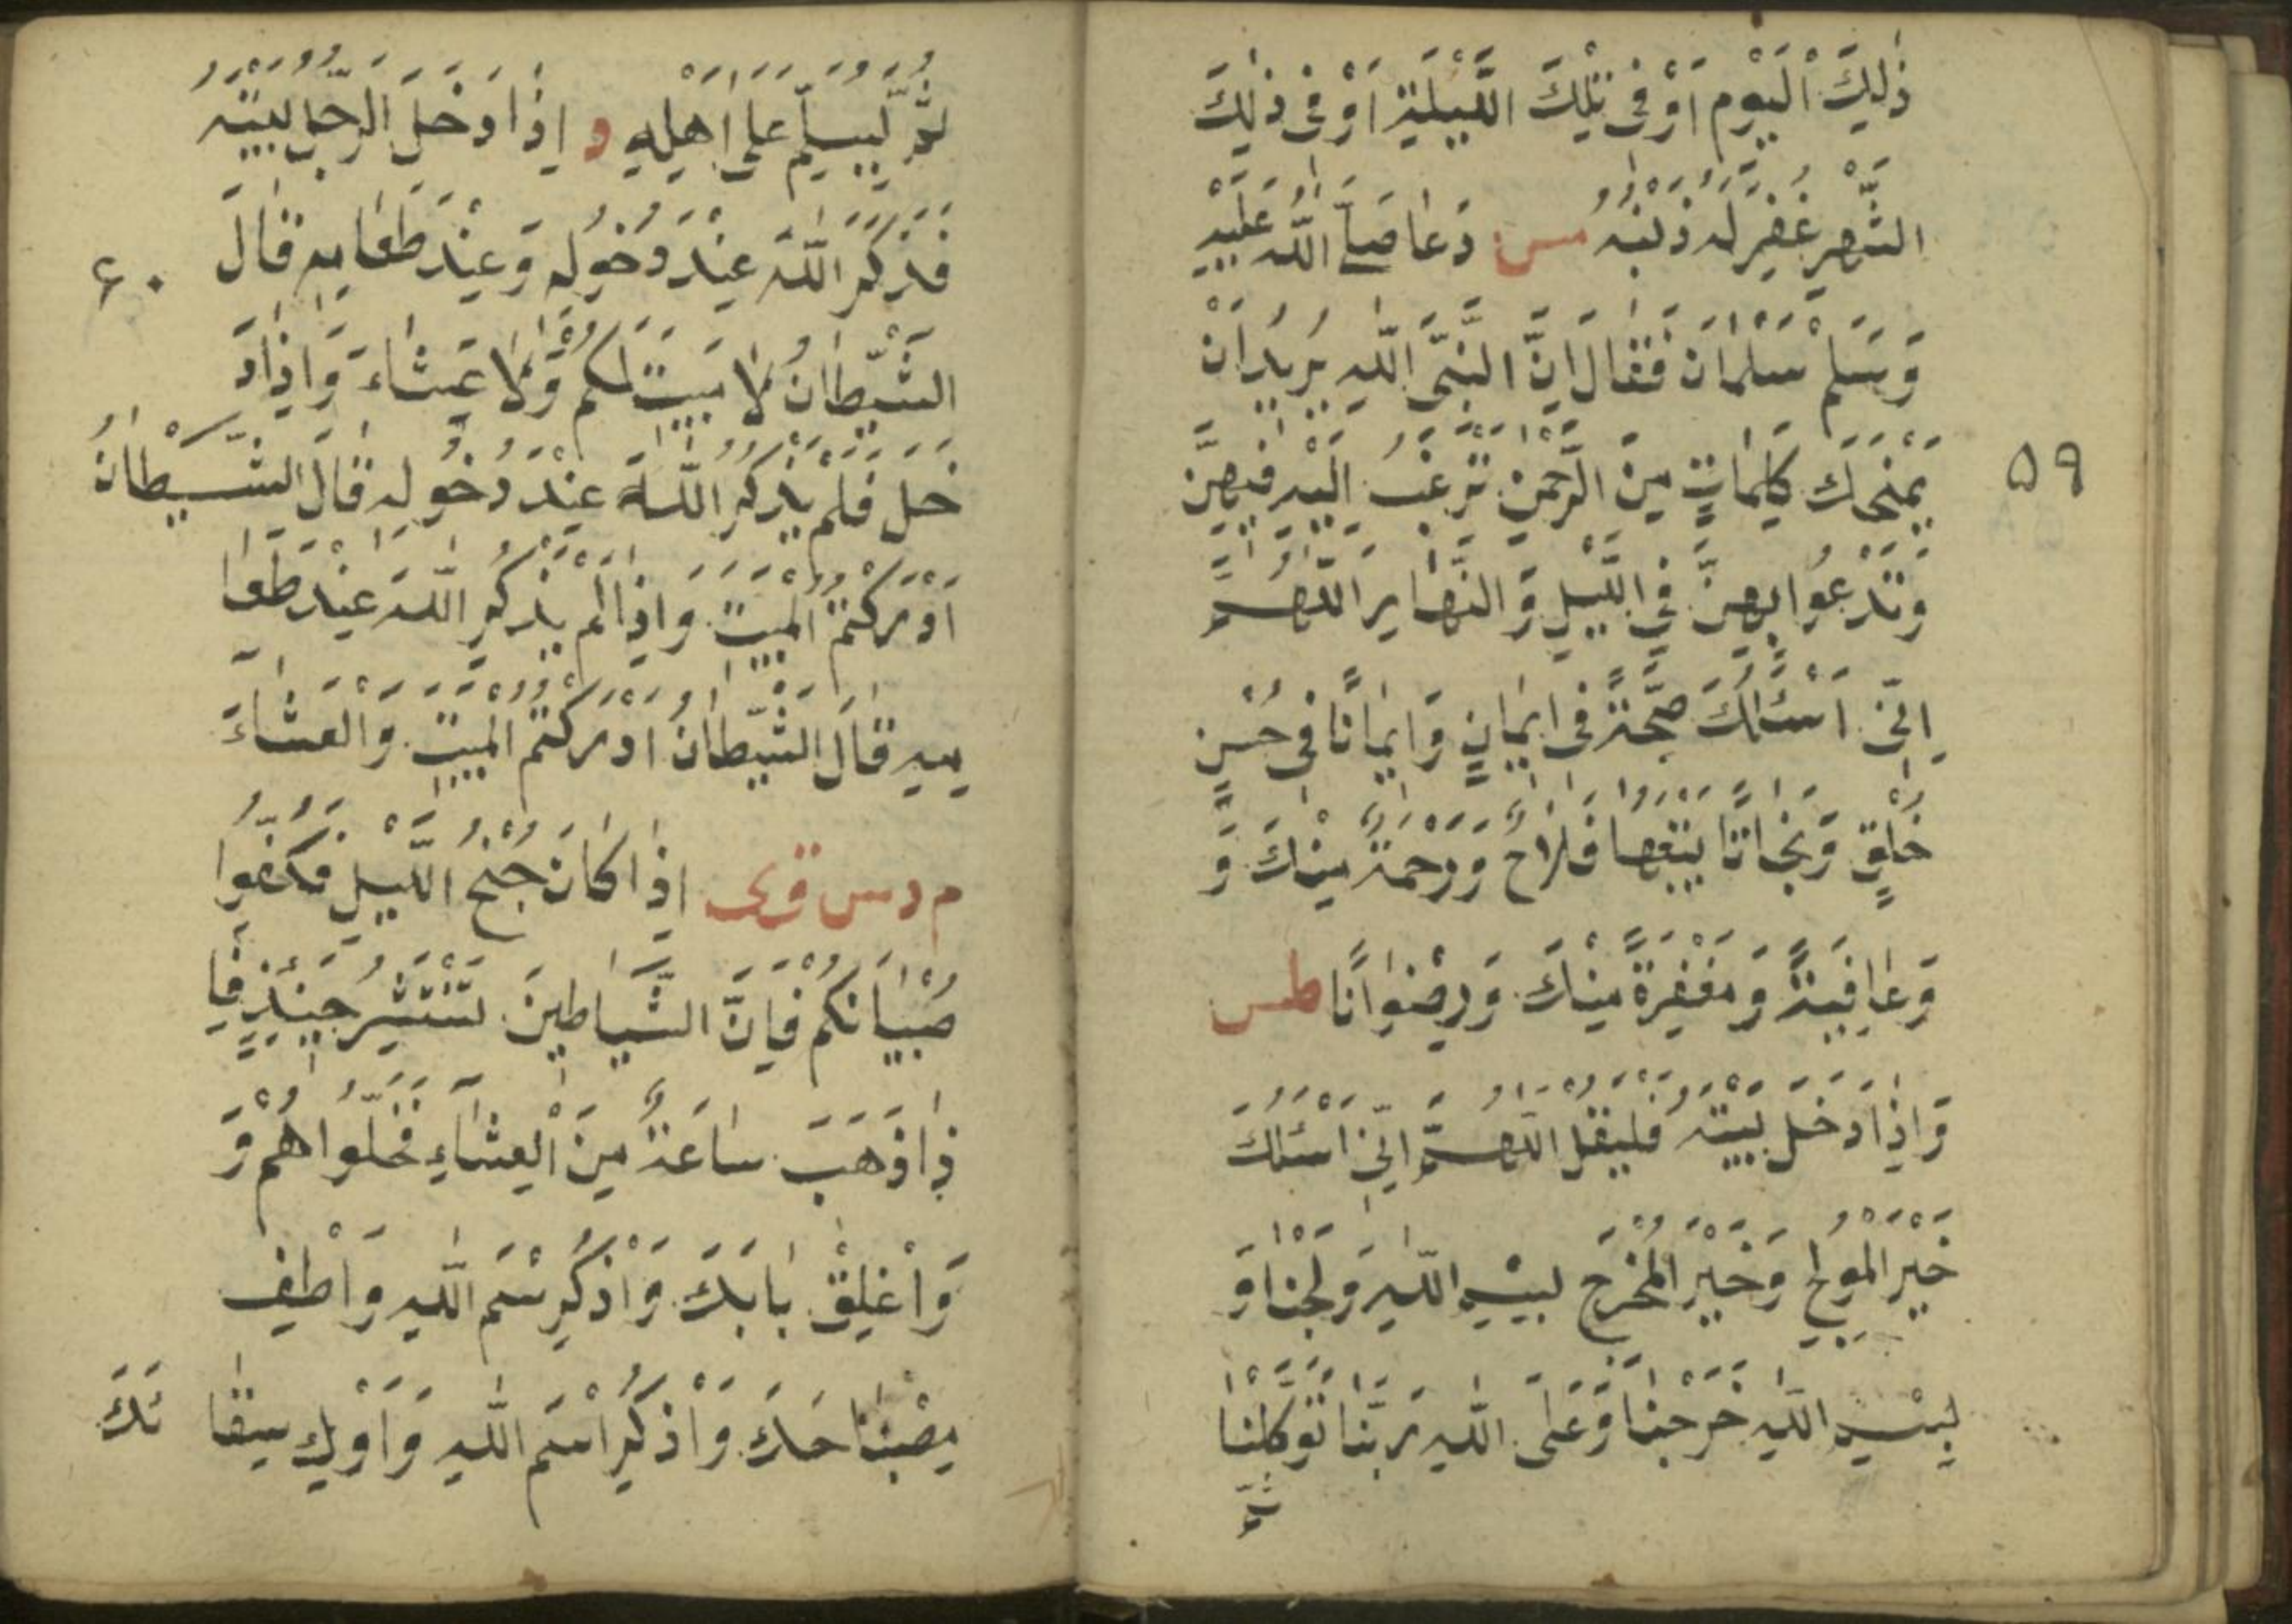 ذٰلِكَ الْيَوْمِ اَوْ فِیْ تِلْكَ اللَّيْلَةِ اَوْ فِیْ ذٰلِكَ
الشَّهْرِ غُفِرَ لَهٗ ذَنْبُهٗ مس دَعَا صَلَّى اللّٰهُ عَلَيْهِ
وَسَلَّمَ سَلْمَانَ فَقَالَ اِنَّ النَّبِیَّ اللّٰهِ يُرِيْدُ اَنْ
۵۹
يَمْنَحَكَ كَلِمَاتٍ مِنَ الرَّحْمٰنِ تَرْغَبُ اِلَيْهِ فِيْهِنَّ
وَتَدْعُوْا بِهِنَّ فِي اللَّيْلِ وَالنَّهَارِ اَللّٰهُمَّ
اِنِّیْ اَسْئَلُكَ صِحَّةً فِیْ اِيْمَانٍ وَاِيْمَانًا فِیْ حُسْنِ
خُلُقٍ وَنَجَاتًا يَتْبَعُهَا فَلَاحٌ وَرَحْمَةً مِنْكَ وَ
وَعَافِيَةً وَمَغْفِرَةً مِنْكَ وَرِضْوَانًا طس
وَاِذَا دَخَلَ بَيْتَهٗ فَلْيَقُلْ اَللّٰهُمَّ اِنِّیْ اَسْئَلُكَ
خَيْرَ الْمَوْلِجِ وَخَيْرَ الْمَخْرَجِ بِسْمِ اللّٰهِ وَلَجْنَا وَ
بِسْمِ اللّٰهِ خَرَجْنَا وَعَلَى اللّٰهِ رَبِّنَا تَوَكَّلْنَا
ثُمَّ
ثُمَّ لْيُسَلِّمْ عَلٰى اَهْلِهٖ د اِذَا دَخَلَ الرَّجُلُ بَيْتَهٗ
فَذَكَرَ اللّٰهَ عِنْدَ دُخُوْلِهٖ وَعِنْدَ طَعَامِهٖ قَالَ
۶۰
الشَّيْطَانُ لَا مَبِيْتَ لَكُمْ وَلَا عَشَاءَ وَاِذَا دَ
خَلَ فَلَمْ يَذْكُرِ اللّٰهَ عِنْدَ دُخُوْلِهٖ قَالَ الشَّيْطَانُ
اَدْرَكْتُمُ الْمَبِيْتَ وَاِذَا لَمْ يَذْكُرِ اللّٰهَ عِنْدَ طَعَا
مِهٖ قَالَ الشَّيْطَانُ اَدْرَكْتُمُ الْمَبِيْتَ وَالْعَشَاءَ
م د س ق ی اِذَا كَانَ جُنْحُ اللَّيْلِ فَكُفُّوْا
صِبْيَانَكُمْ فَاِنَّ الشَّيَاطِيْنَ تَنْتَشِرُ حِيْنَئِذٍ فَاِ
ذَا ذَهَبَ سَاعَةٌ مِنَ الْعِشَاءِ فَخَلُّوْا هُمْ وَ
وَاَغْلِقْ بَابَكَ وَاذْكُرِ سْمَ اللّٰهِ وَاَطْفِ
مِصْبَاحَكَ وَاذْكُرِ اسْمَ اللّٰهِ وَاَوْكِ سِقَا ئَكَ